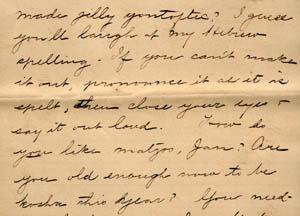 made gilly yontoftic? I guess
you'll laugh at my Hebrew
spelling. If you can't make
it out, pronounce it as it is
spelt, then close your eyes &
say it out loud. How do
you like matzos, Jan? Are
you old enough now to be
kosha this year? You need-